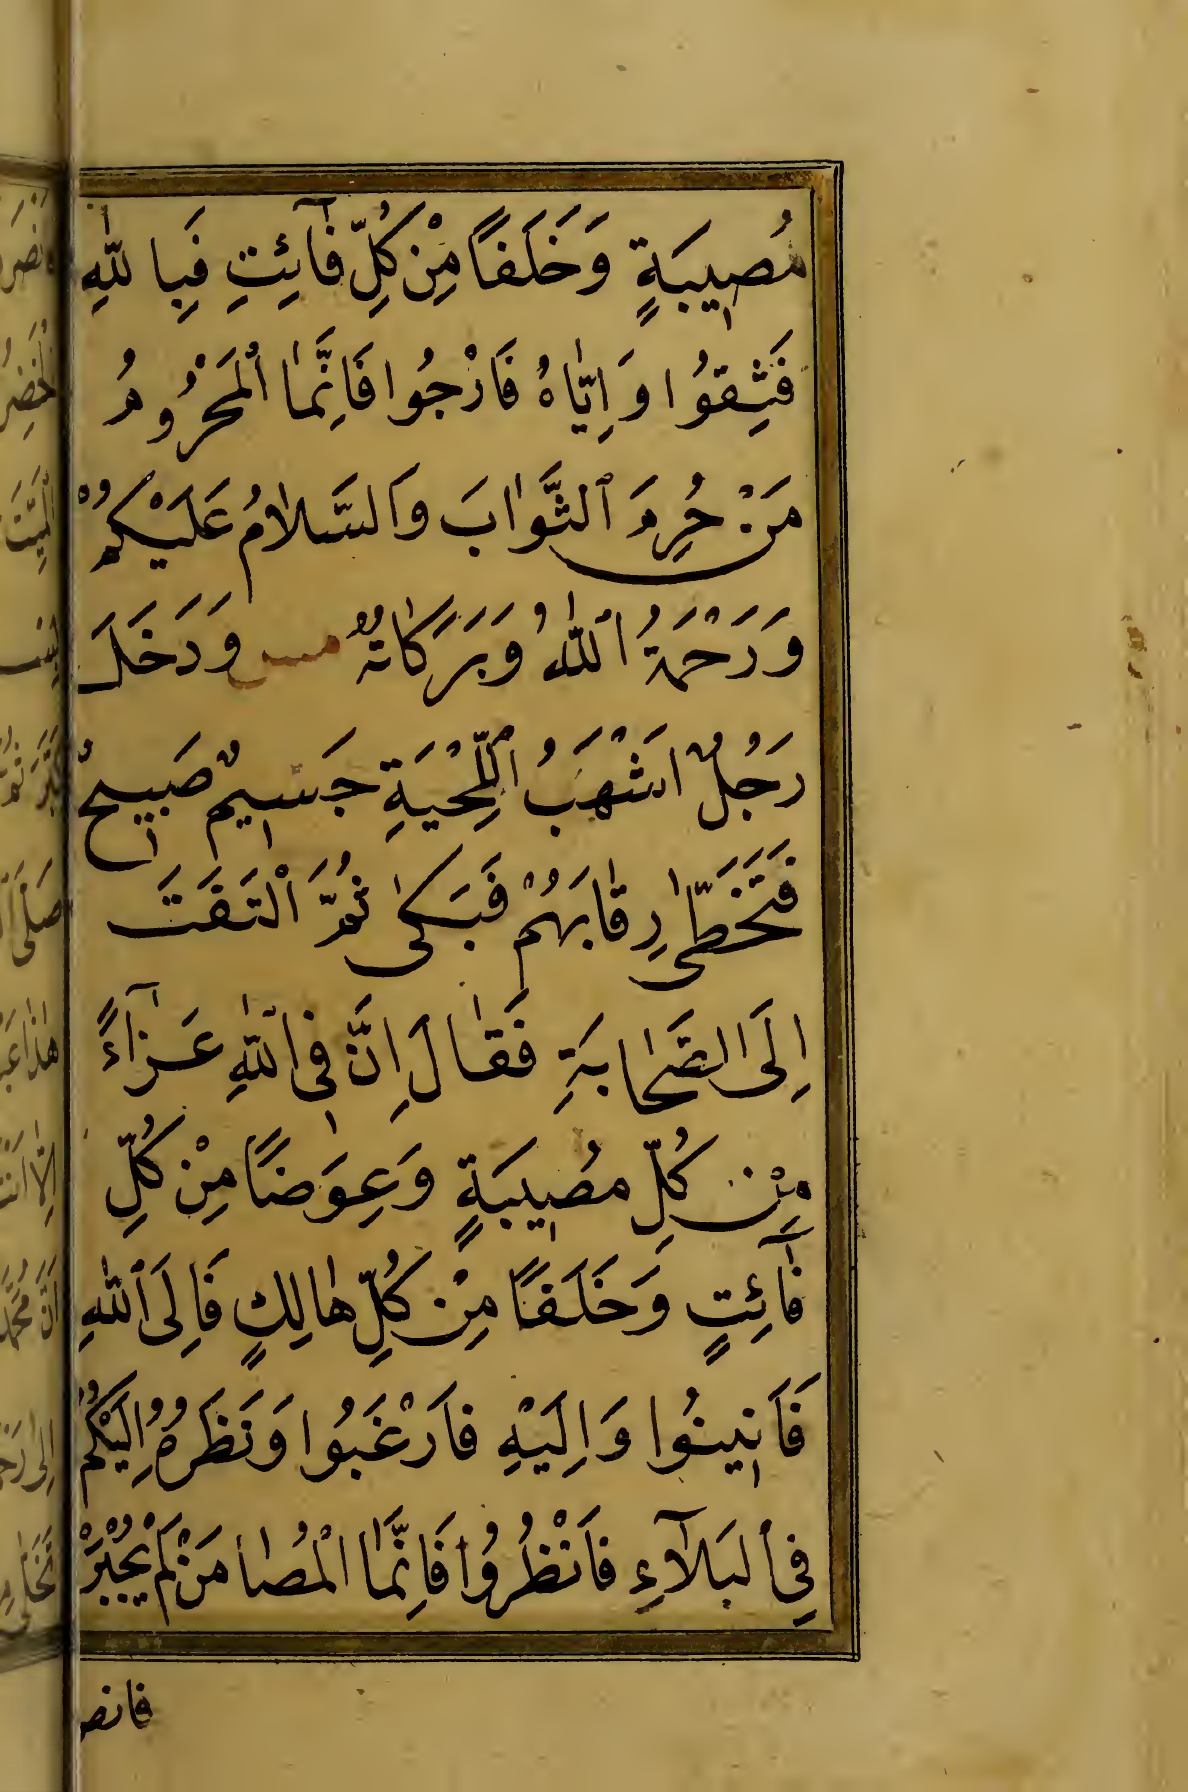 مُصِيبَةٍ وَخَلَفًا مِنْ كُلِّ فَآئِتٍ فَبِاللّٰهِ
فَثِقُوا وَاِيَّاهُ فَارْجُوا فَاِنَّمَا الْمَحْرُومُ
مَنْ حُرِمَ الثَّوَابَ وَالسَّلَامُ عَلَيْكُمْ
وَرَحْمَةُ اللّٰهِ وَبَرَكَاتُهُ مس وَدَخَلَ
رَجُلٌ اَشْهَبُ اللِّحْيَةِ جَسِيمٌ صَبِيحٌ
فَتَخَطّٰى رِقَابَهُمْ فَبَكٰى ثُمَّ الْتَفَتَ
اِلَى الصَّحَابَةِ فَقَالَ اِنَّ فِى اللّٰهِ عَزَآءً
مِنْ كُلِّ مُصِيبَةٍ وَعِوَضًا مِنْ كُلِّ
فَآئِتٍ وَخَلَفًا مِنْ كُلِّ هَالِكٍ فَاِلَى اللّٰهِ
فَاَنِيبُوا وَاِلَيْهِ فَارْغَبُوا وَنَظَرُهُ اِلَيْكُمْ
فِى الْبَلَآءِ فَانْظُرُوا فَاِنَّمَا الْمُصَابُ مَنْ لَمْ يُجْبَرْ
فانص